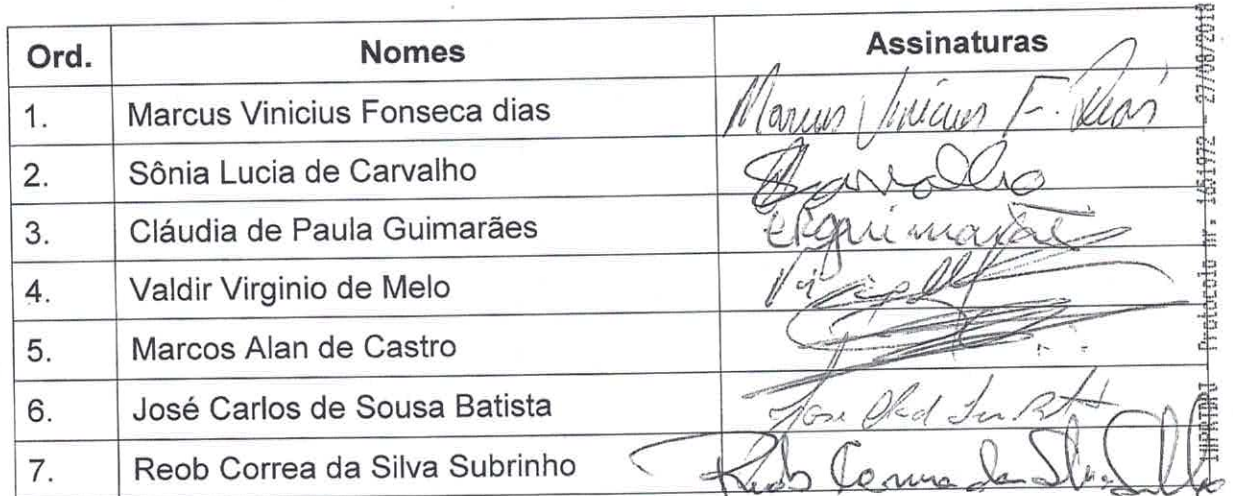 Ord. Nomes Assinaturas
1. Marcus Vinicius Fonseca dias Marcus Vinicius F. Dias
2. Sônia Lucia de Carvalho SCarvalho
3. Cláudia de Paula Guimarães CPGuimarães
4. Valdir Virginio de Melo
5. Marcos Alan de Castro
6. José Carlos de Sousa Batista José
7. Reob Correa da Silva Subrinho Reob Correa da Silva
Protocolo nr. 1651972 - 27/08/2018